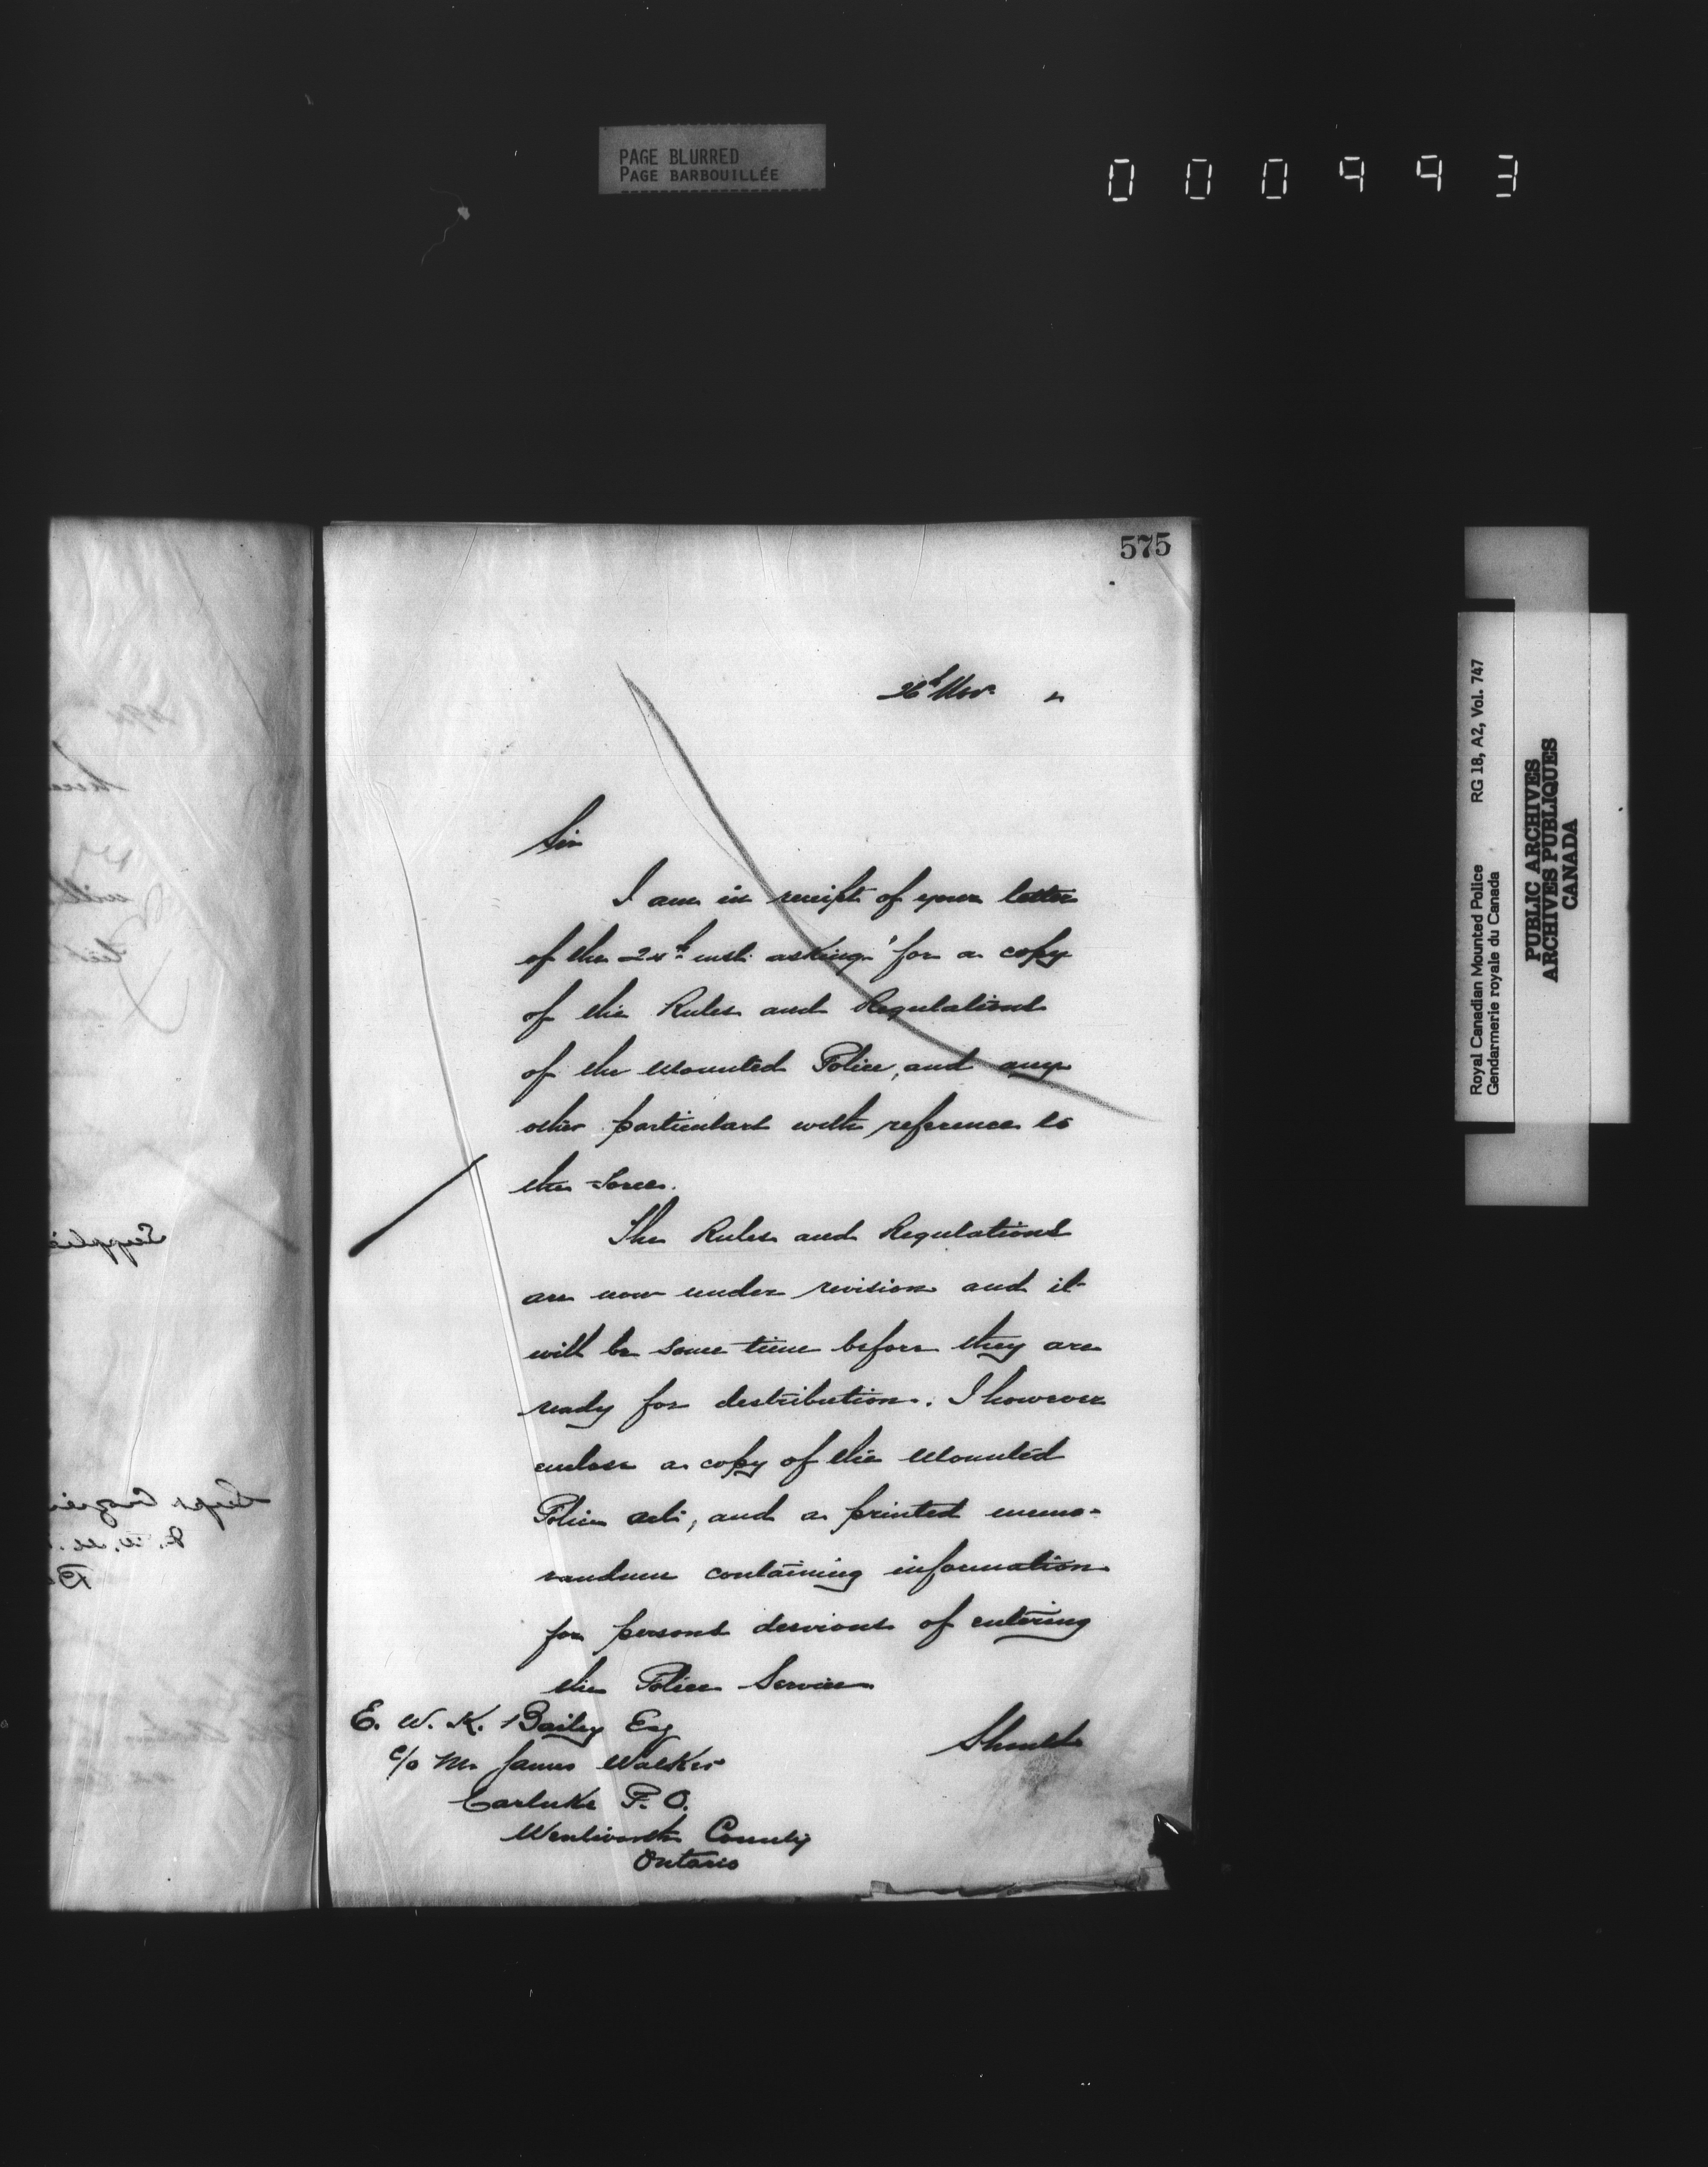 PAGE BLURRED
PAGE BARBOUILLÉE
000993
575
26th Nov.
Sir
I am in receipt of your letter
of the 24th inst. asking for a copy
of the Rules and Regulations
of the Mounted Police, and any
other particulars with reference to
the Force.
The Rules and Regulations
are now under revision and it
will be some time before they are
ready for distribution. I however
enclose a copy of the Mounted
Police act, and a printed memo-
randum containing information
for persons desirous of entering
the Police Service
E. W. K. Bailey Esq
c/o Mr James Walker
Carluke P.O.
Wentworth County
Ontario
Royal Canadian Mounted Police RG 18, A2, Vol. 747
Gendarmerie royale du Canada
PUBLIC ARCHIVES
ARCHIVES PUBLIQUES
CANADA